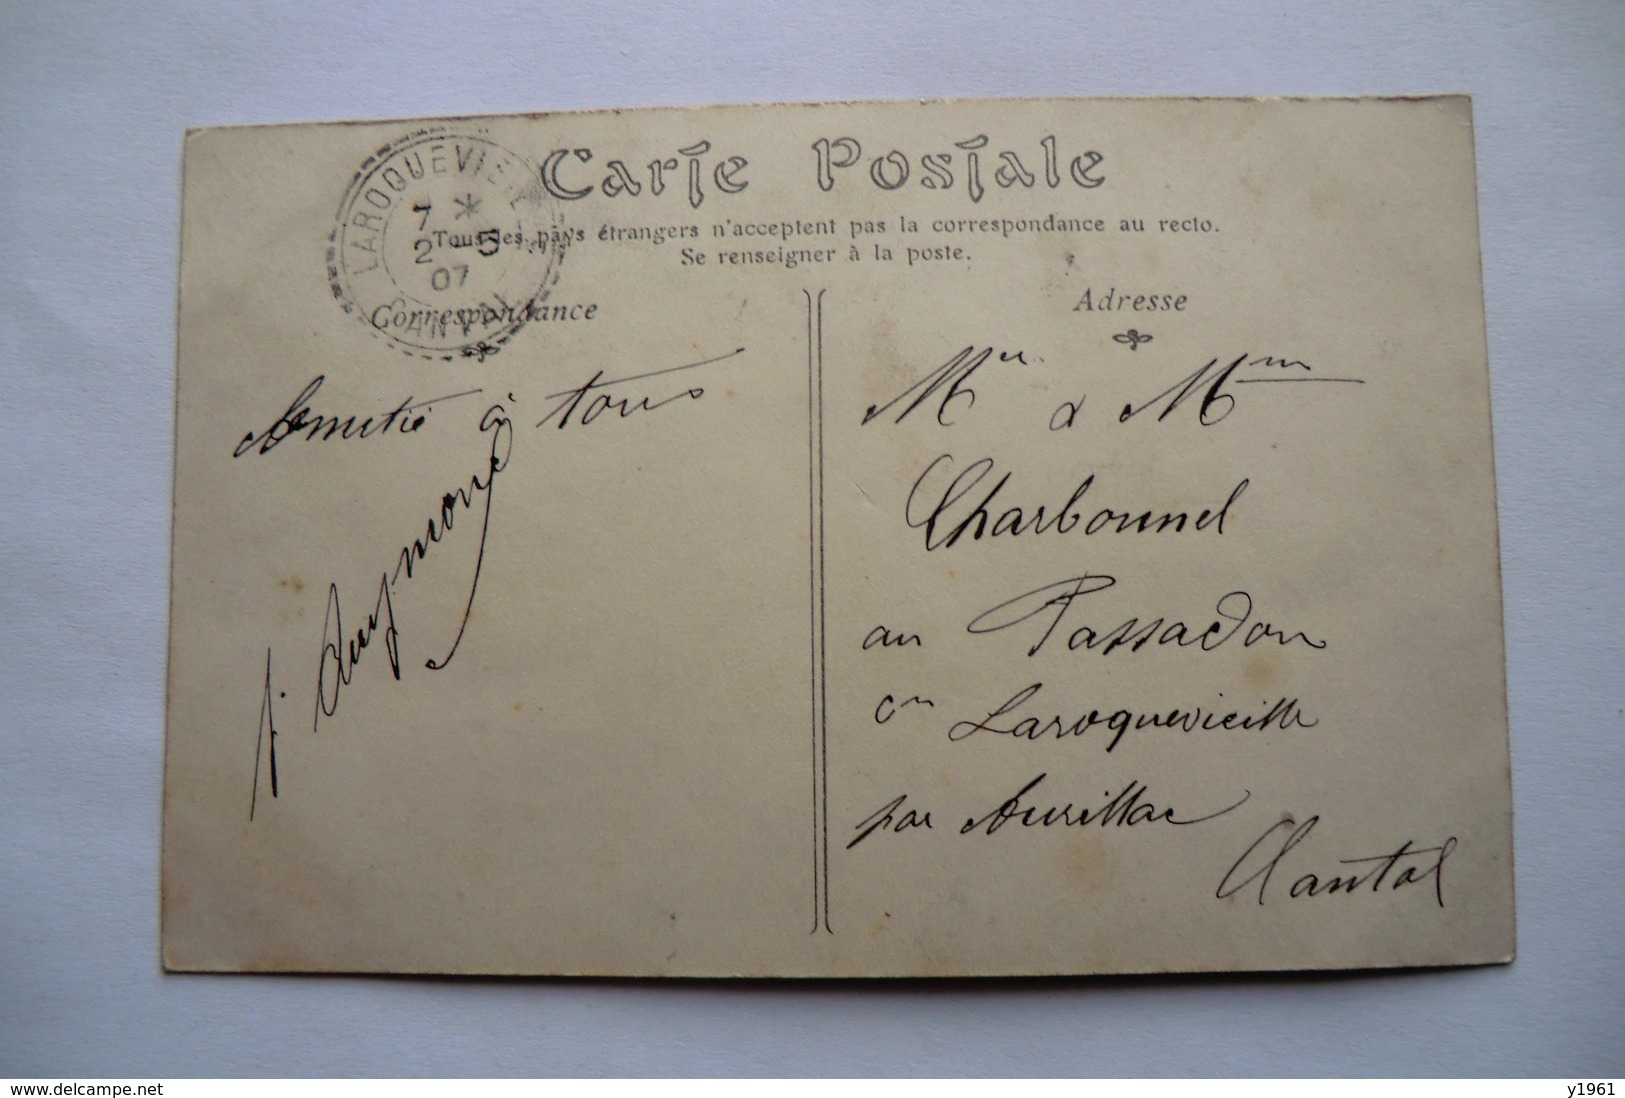 Carte Postale
Tous les pays étrangers n'acceptent pas la correspondance au recto.
Se renseigner à la poste.
LAROQUEVIEI
7 *
2 - 5
07
CANTAL
Correspondance
Amitié à tous
J. Auymond
Adresse
Mr & Mme
Charbonnel
au Passadou
Cne Laroquevieille
par Aurillac
Cantal
www.delcampe.net
y1961